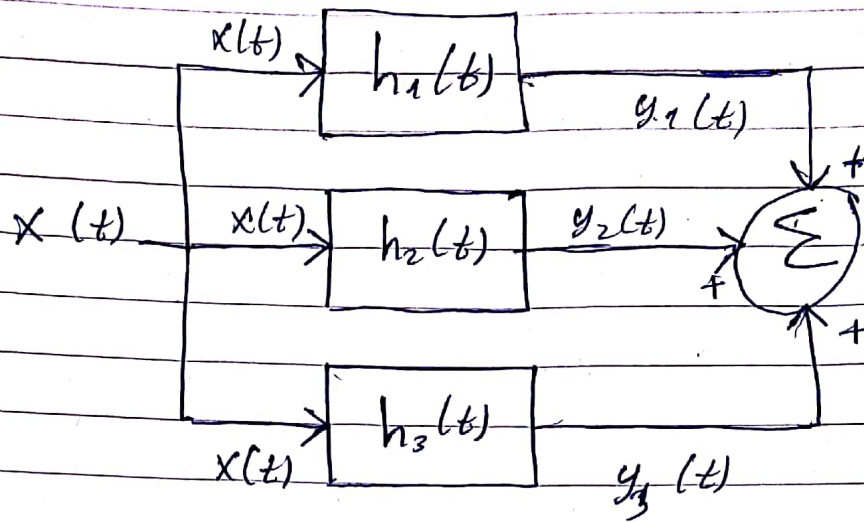 x(t)
h₁(t)
y₁(t)
+
x(t)
x(t)
h₂(t)
y₂(t)
Σ
+
+
h₃(t)
x(t)
y₃(t)